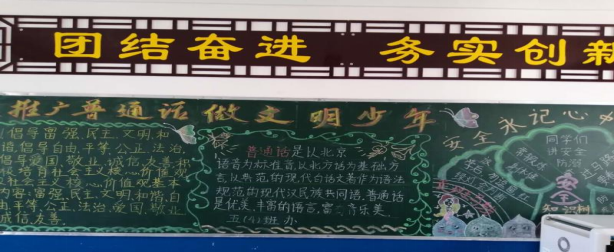 团结奋进 务实创新
推广普通话 做文明少年
倡导富强,民主,文明,和
谐,倡导自由,平等,公正,法治
倡导爱国,敬业,诚信,友善积
极培育社会主义核心价值观
价值观基本
内容:富强,民主,文明,和谐,自
由,平等,公正,法治,爱国,敬业
诚信,友善
普通话是以北京
语音为标准音以北方话为基础方
言以典范的现代白话文著作为语法
规范的现代汉民族共同语,普通话
是优美,丰富的语言,富音乐美.
五(4)班办
安全永记心
同学们
讲安全
安全
知识树